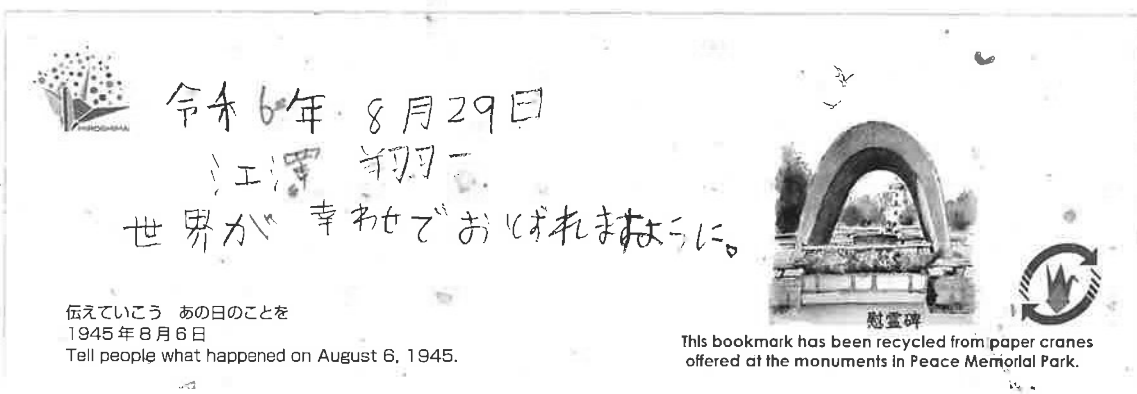 HIROSHIMA
令和6年 8月29日
江澤 翔一
世界が 幸わせで おとずれますように。
伝えていこう あの日のことを
1945年8月6日
Tell people what happened on August 6, 1945.
慰霊碑
This bookmark has been recycled from paper cranes
offered at the monuments in Peace Memorial Park.